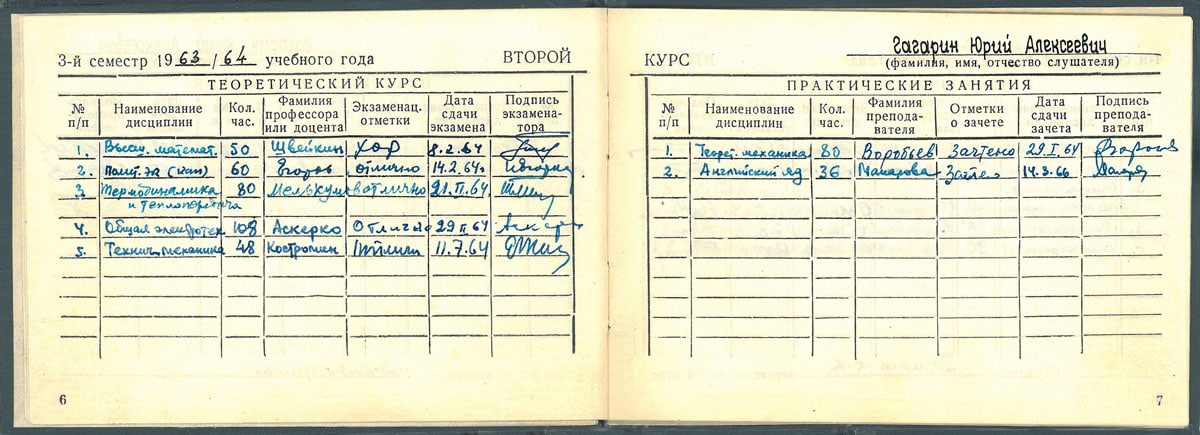 3-й семестр 1963/64 учебного года ВТОРОЙ
ТЕОРЕТИЧЕСКИЙ КУРС
№ п/п Наименование дисциплин Кол. час. Фамилия профессора или доцента Экзаменац. отметки Дата сдачи экзамена Подпись экзамена-тора
1. Высш. математ. 50 Швейкин хор 8.2.64
2. Полит. эк (кап) 60 Егоров отлично 14.2.64г
3. Термодинамика 80 отлично 21.II.64
и теплопередача
4. Общая электротех 108 Аскерко Отлично 29 II 64
5. Технич механика 48 Костромин 11.7.64
6
Гагарин Юрий Алексеевич
КУРС (фамилия, имя, отчество слушателя)
ПРАКТИЧЕСКИЕ ЗАНЯТИЯ
№ п/п Наименование дисциплин Кол. час. Фамилия препода-вателя Отметки о зачете Дата сдачи зачета Подпись препода-вателя
1. Теорет. механика 80 Воробьев Зачтено 29.I.64
2. Английский яз 36 Макарова 14.3.66
7